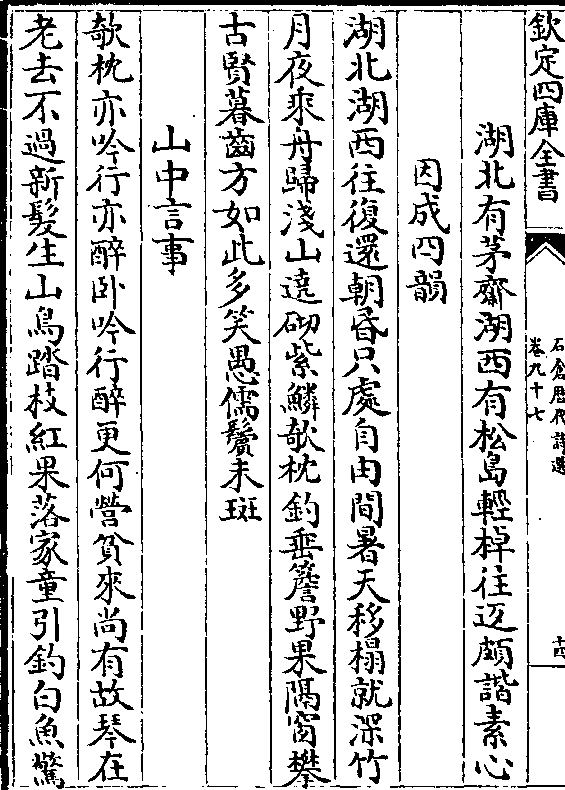 欽定四庫全書
石倉歴代詩選
卷九十七
十四
湖北有茅齋湖西有松島輕棹往返頗諧素心
因成四韻
湖北湖西往復還朝昏只處自由間暑天移榻就深竹
月夜乘舟歸淺山遶砌紫鱗欹枕釣垂簷野果隔窗攀
古賢暮齒方如此多笑愚儒鬢未斑
山中言事
欹枕亦吟行亦醉卧吟行醉更何營貧來尚有故琴在
老去不過新髮生山鳥踏枝紅果落家童引釣白魚驚